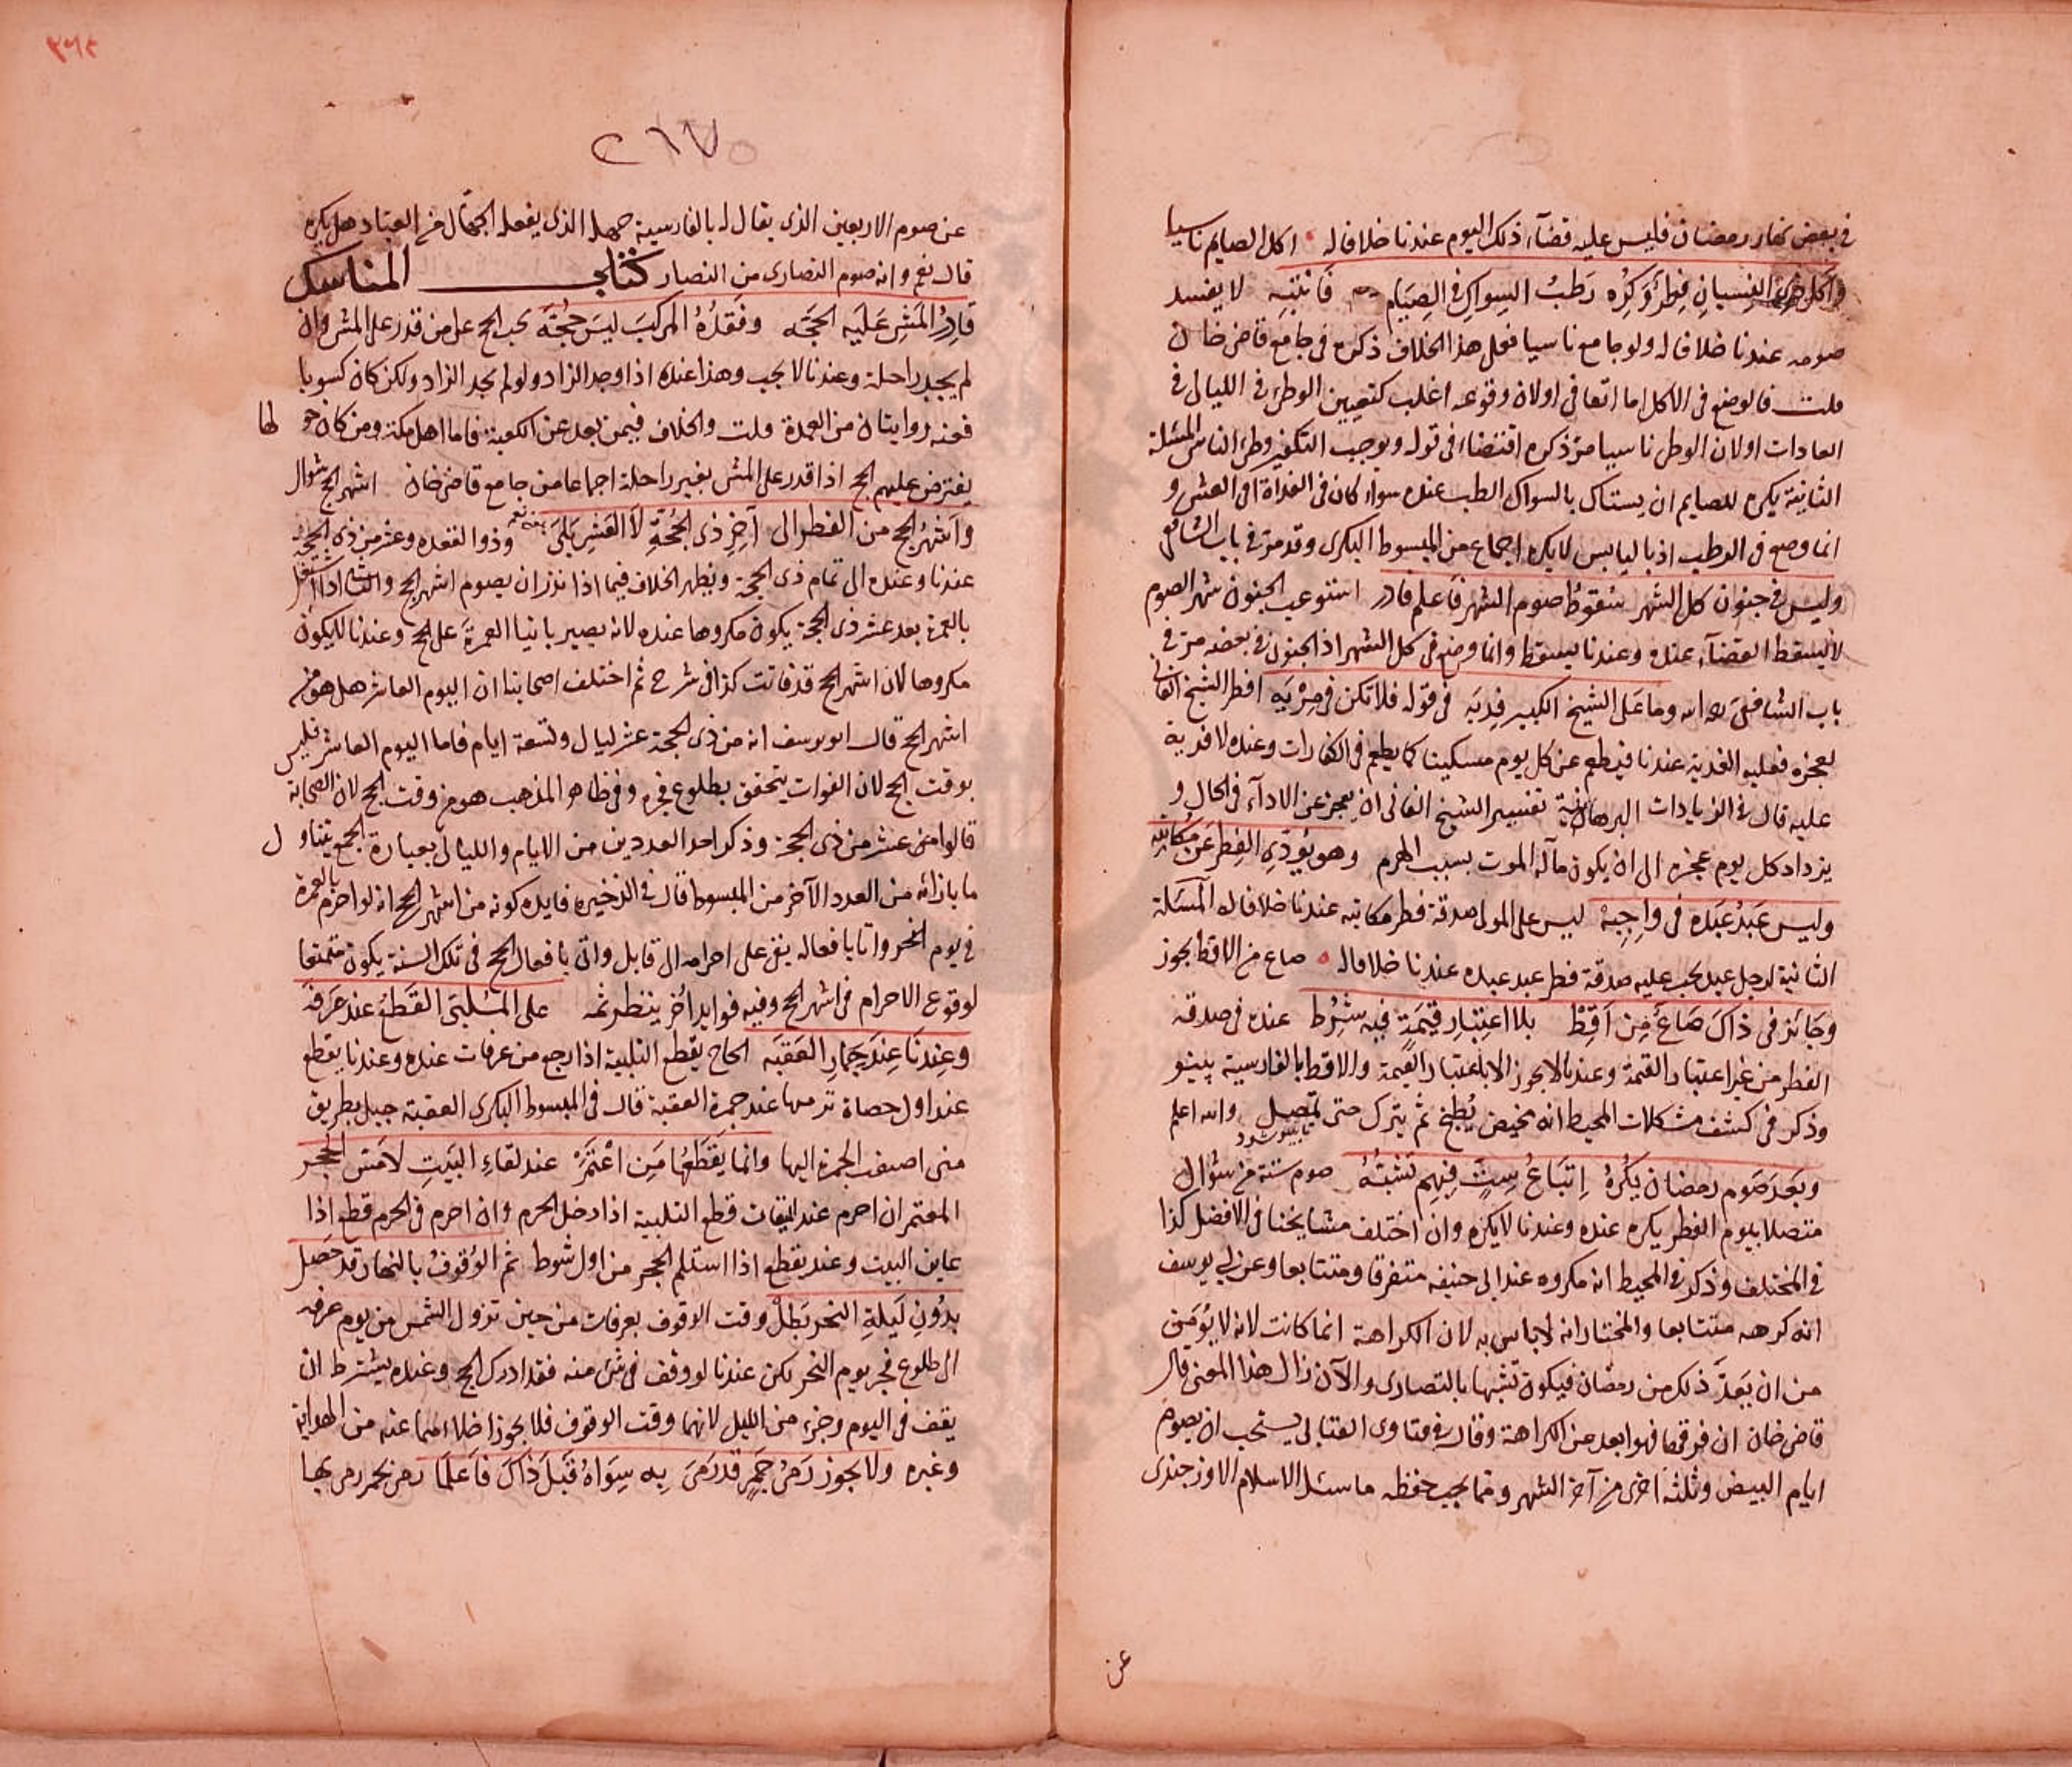 في بعض نهار رمضان فليس عليه قضآء ذلك اليوم عندنا خلافا له اكل الصايم ناسيا
واكل ذي النسيان فطر وكره رطب السواك في الصيام فانتبه لا يفسد
صومه عندنا خلافا له ولو جامع ناسيا فعلى هذا الخلاف ذكره في جامع قاضي خان
قلت فالوضع في الاكل اما اتفاقي اولان وقوعه اغلب كتعيين الوطئ في الليالي في
العادات اولان الوطئ ناسيا مر ذكره اقتضاء في قوله ويوجب التكفير وطئ الناسي المسئلة
الثانية يكره للصايم ان يستاك بالسواك الرطب عنده سواء كان في الغداة او العشي و
انما وضع في الرطب اذ باليابس لا يكره اجماعا من المبسوط البكري وقد مر في باب الشافعي
وليس في جنون كل الشهر سقوط صوم الشهر فاعلم فادر استوعب الجنون شهر الصوم
لا يسقط القضآء عنده وعندنا يسقط وانما وضع في كل الشهر اذ الجنون في بعضه مر في
باب الشافعي رحمه الله وما على الشيخ الكبير فديه في قوله فلا تكن في مريه افطر الشيخ الفاني
لعجزه فعليه الفدية عندنا فيطعم عن كل يوم مسكينا كما يطعم في الكفارات وعنده لا فدية
عليه قال في الزيادات البرهانية تفسير الشيخ الفاني ان يعجز عن الادآء في الحال و
يزداد كل يوم عجزه الى ان يكون مآله الموت بسبب الهرم وهو يؤدي الفطر عن مكاتبه
وليس عبد عبده في واجبه ليس على المولى صدقة فطر مكاتبه عندنا خلافا له المسئلة
الثانية لرجل عبد يجب عليه صدقة فطر عبد عبده عندنا خلافا له صاع من الاقط يجوز
وجائز في ذاك صاع من اقط بلا اعتبار قيمة فيه شرط عنده في صدقة
الفطر من غير اعتبار القيمة وعندنا لا يجوز الا باعتبار القيمة والاقط بالفارسية پينو
وذكر في كشف مشكلات المحيط انه مخيض يطبخ ثم يترك حتى يمصل والله اعلم
وبعد صوم رمضان يكره اتباع ست فيهم تشبه صوم ستة من شوال
متصلا بيوم الفطر يكره عنده وعندنا لا يكره وان اختلف مشايخنا في الافضل كذا
في المختلف وذكر في المحيط انه مكروه عند ابي حنيفه متفرقا ومتتابعا وعن ابي يوسف
انه كرهه متتابعا والمختار انه لا باس به لان الكراهة انما كانت لانه لا يؤمن
من ان يعد ذلك من رمضان فيكون تشبها بالنصارى والآن زال هذا المعنى قال
قاضي خان ان فرقها فهو ابعد عن الكراهة وقال في فتاوى العتابي يستحب ان يصوم
ايام البيض وثلثه اخرى من آخر الشهر ومما يجب حفظه ما سئل الاسلام الاوزجندي
عن
٢٦٧
عن صوم الاربعين الذي يقال له بالفارسية چهله الذي يفعله الجهال من العباد هل يكره
قال نعم وانه صوم النصارى من النصار كتاب المناسك
قادر المشي عليه الحجه وفقده المركب ليس حجه يجب الحج على من قدر على المشي وان
لم يجد راحلة وعندنا لا يجب وهذا عنده اذا وجد الزاد ولو لم يجد الزاد ولكن كان كسوبا
فعنه روايتان من العمدة قلت والخلاف فيمن بعد عن الكعبة فاما اهل مكة ومن كان حولها
يفترض عليهم الحج اذا قدر على المشي بغير راحلة اجماعا من جامع قاضي خان اشهر الحج شوال
واشهر الحج من الفطر الى آخر ذي الحجة لا العشر بلى وذو القعده وعشر من ذي الحجه
عندنا وعنده الى تمام ذي الحجة ويظهر الخلاف فيما اذا نذر ان يصوم اشهر الحج والثاني اذا اشتغل
بالعمرة بعد عشر ذي الحجة يكون مكروها عنده لانه يصير بانيا العمرة على الحج وعندنا لا يكون
مكروها لان اشهر الحج قد فاتت كذا في شرح ثم اختلف اصحابنا ان اليوم العاشر هل هو من
اشهر الحج قال ابو يوسف انه من ذي الحجة عشر ليال وتسعة ايام فاما اليوم العاشر فليس
بوقت الحج لان الفوات يتحقق بطلوع فجره وفي ظاهر المذهب هو من وقت الحج لان الصحابة
قالوا من عشر من ذي الحجة وذكر احد العددين من الايام والليالي بعبارة الجمع يتناول
ما بازائه من العدد الآخر من المبسوط قال في الذخيره فايده كونه من اشهر الحج انه لو احرم بالعمرة
في يوم النحر واتا بافعاله يبقى على احرامه الى قابل واتى بافعال الحج في تلك السنة يكون متمتعا
لوقوع الاحرام في اشهر الحج وفيه فوايد اخر ينظر ثمه على الملبي القطع عند عرفه
وعندنا عند جمار العقبه الحاج يقطع التلبية اذا رجع من عرفات عنده وعندنا يقطع
عند اول حصاة ترميها عند جمرة العقبة قال في المبسوط البكري العقبة جبل بطريق
منى اضيف الجمرة اليها وانما يقطعها من اعتمر عند لقاء البيت لا مس الحجر
المعتمر ان احرم عند الميقات قطع التلبية اذا دخل الحرم وان احرم في الحرم قطع اذا
عاين البيت وعند يقطع اذا استلم الحجر من اول شوط ثم الوقوف بالنهار قد حصل
بدون ليلة النحر بطل وقت الوقوف بعرفات من حين تزول الشمس من يوم عرفه
الى طلوع فجر يوم النحر لكن عندنا لو وقف في شيء منه فقد ادرك الحج وعنده يشترط ان
يقف في اليوم وجزء من الليل لانهما وقت الوقوف فلا يجوز اخلاءهما عنه من الهداية
وغيره ولا يجوز رمي جمر قد رمى به سواه قبل ذاك فاعلما رمى بحجر رمى بها